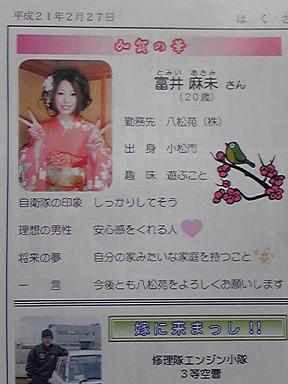 平成21年2月27日
はくさ
加賀の幸
とみい あさみ
富井 麻未 さん
(20歳)
勤務先 八松苑(株)
出身 小松市
趣味 遊ぶこと
自衛隊の印象 しっかりしてそう
理想の男性 安心感をくれる人
将来の夢 自分の家みたいな家庭を持つこと
一言 今後とも八松苑をよろしくお願いします
嫁に来まっし!!
修理隊エンジン小隊
3等空曹